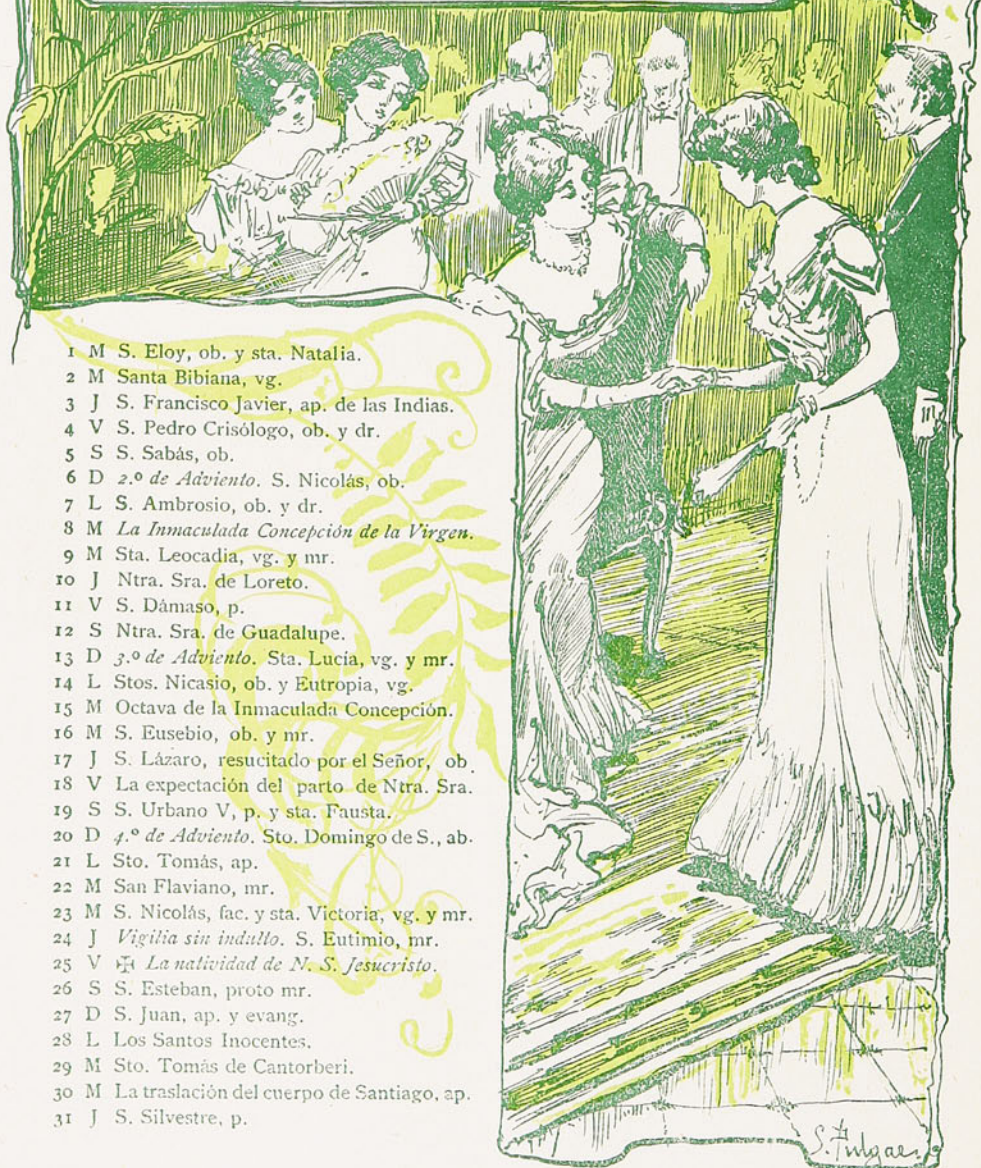 1 M S. Eloy, ob. y sta. Natalia.
2 M Santa Bibiana, vg.
3 J S. Francisco Javier, ap. de las Indias.
4 V S. Pedro Crisólogo, ob. y dr.
5 S S. Sabás, ob.
6 D 2.º de Adviento. S. Nicolás, ob.
7 L S. Ambrosio, ob. y dr.
8 M La Inmaculada Concepción de la Virgen.
9 M Sta. Leocadia, vg. y mr.
10 J Ntra. Sra. de Loreto.
11 V S. Dámaso, p.
12 S Ntra. Sra. de Guadalupe.
13 D 3.º de Adviento. Sta. Lucía, vg. y mr.
14 L Stos. Nicasio, ob. y Eutropia, vg.
15 M Octava de la Inmaculada Concepción.
16 M S. Eusebio, ob. y mr.
17 J S. Lázaro, resucitado por el Señor, ob.
18 V La expectación del parto de Ntra. Sra.
19 S S. Urbano V, p. y sta. Fausta.
20 D 4.º de Adviento. Sto. Domingo de S., ab.
21 L Sto. Tomás, ap.
22 M San Flaviano, mr.
23 M S. Nicolás, fac. y sta. Victoria, vg. y mr.
24 J Vigilia sin indulto. S. Eutimio, mr.
25 V ✠ La natividad de N. S. Jesucristo.
26 S S. Esteban, proto mr.
27 D S. Juan, ap. y evang.
28 L Los Santos Inocentes.
29 M Sto. Tomás de Cantorberi.
30 M La traslación del cuerpo de Santiago, ap.
31 J S. Silvestre, p.